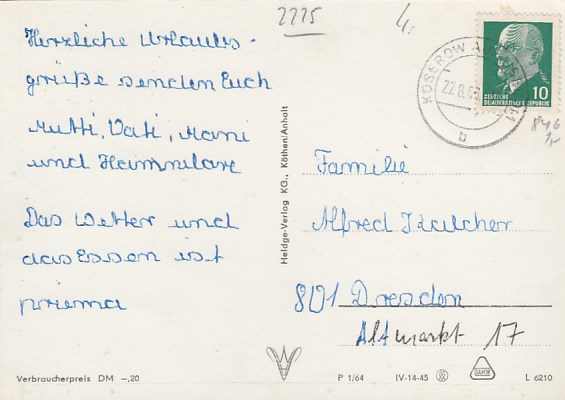 2225
4,-
KOSEROW
22.8.6
b
DEUTSCHE
DEMOKRATISCHE REPUBLIK
10
Herzliche Urlaubs-
grüße senden Euch
Mutti, Vati, Mani
und Hannelore
Das Wetter und
das Essen ist
priema
Heldge-Verlag KG., Köthen/Anhalt
Familie
Alfred
801 Dresden
Altmarkt 17
Verbraucherpreis DM -,20
P 1/64
IV-14-45
L 6210